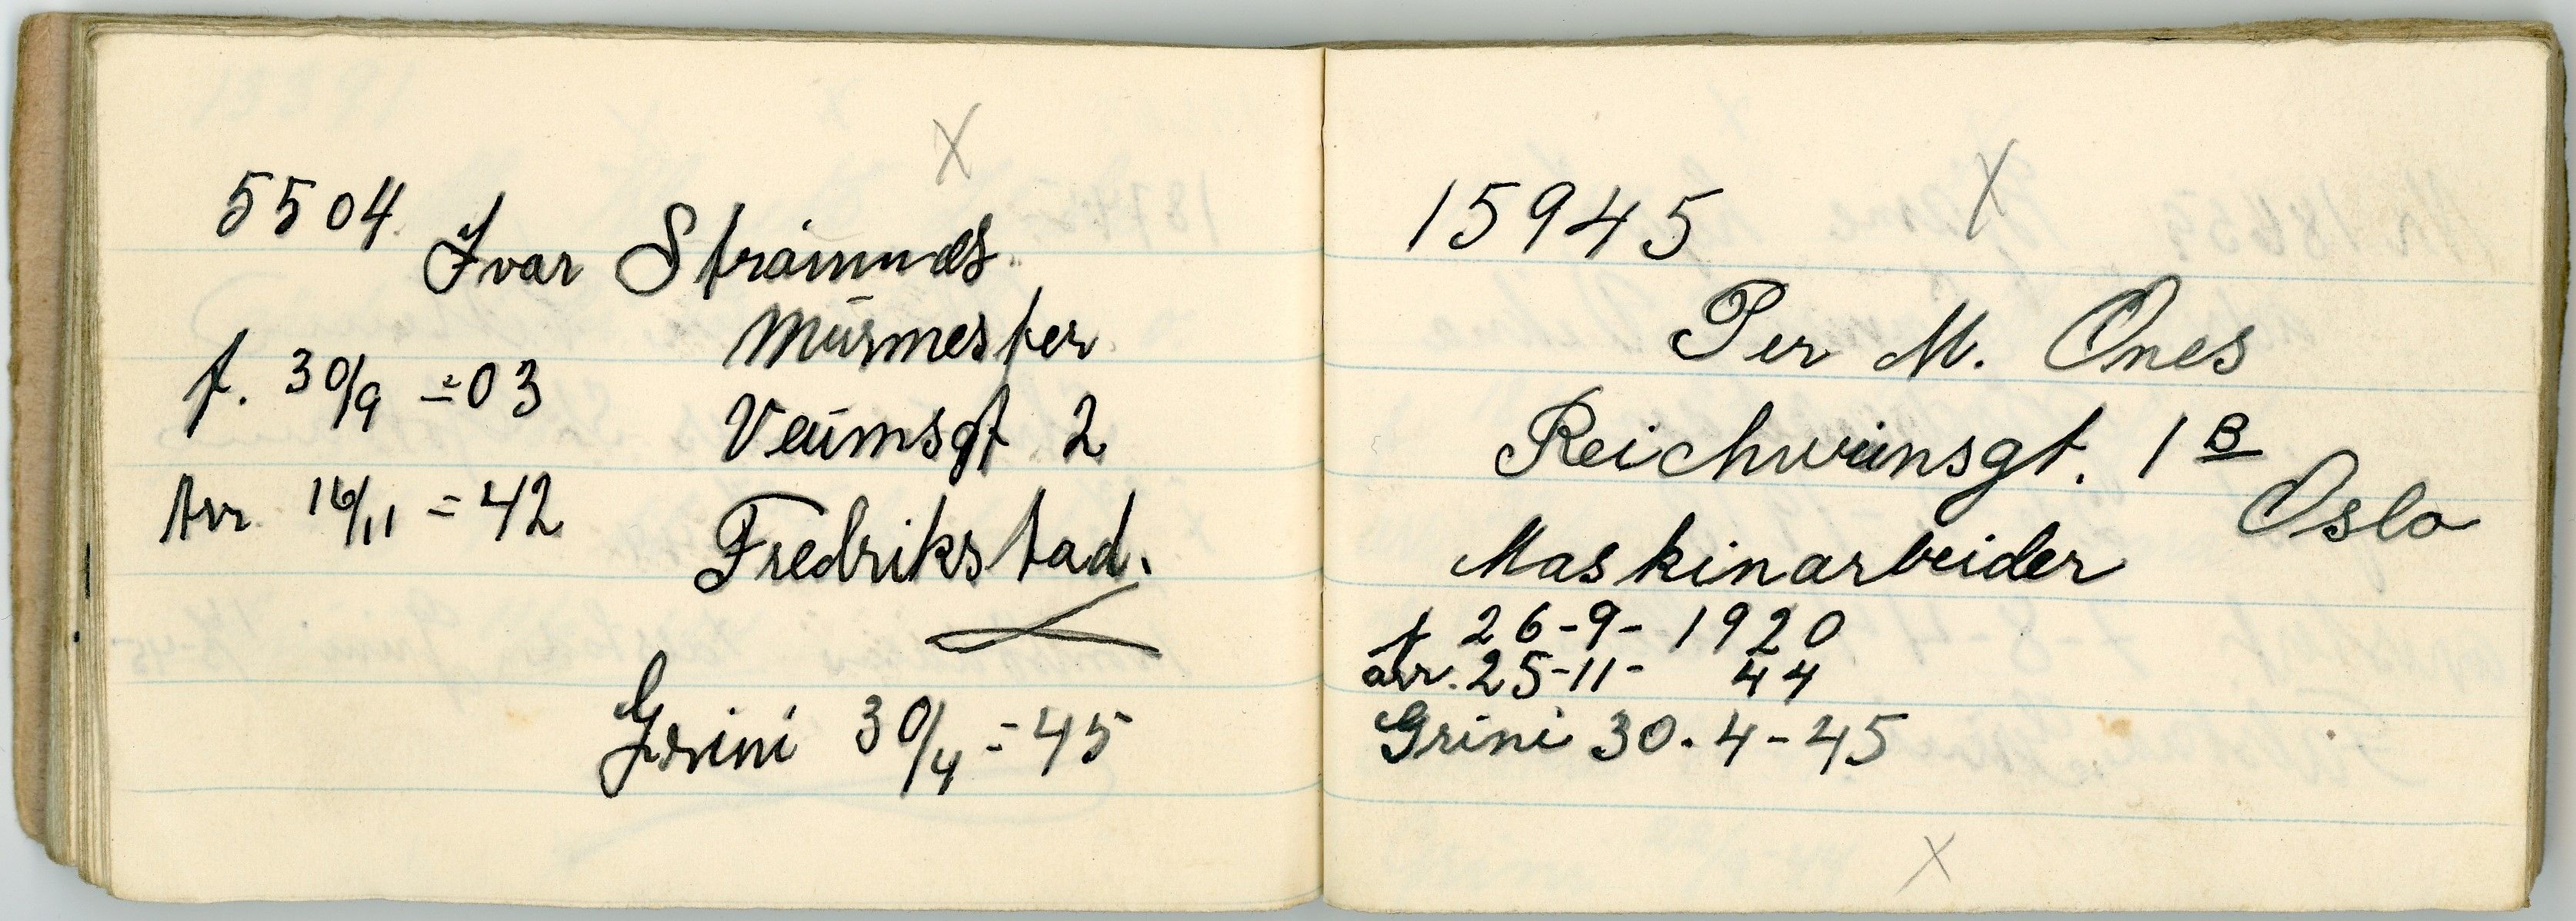 X
5504.
Ivar Strømnes.
Murmester
f. 30/9 = 03
Veumsgt 2
Arr 16/11 = 42
Fredrikstad.
Grini 30/4 = 45
X
15945
Per M. Ones
Reichweinsgt. 1 B
Oslo
Maskinarbeider
f 26-9- 1920
arr. 25-11- 44
Grini 30. 4-45
X